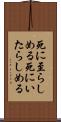 死に至らし
める死にい
たらしめる